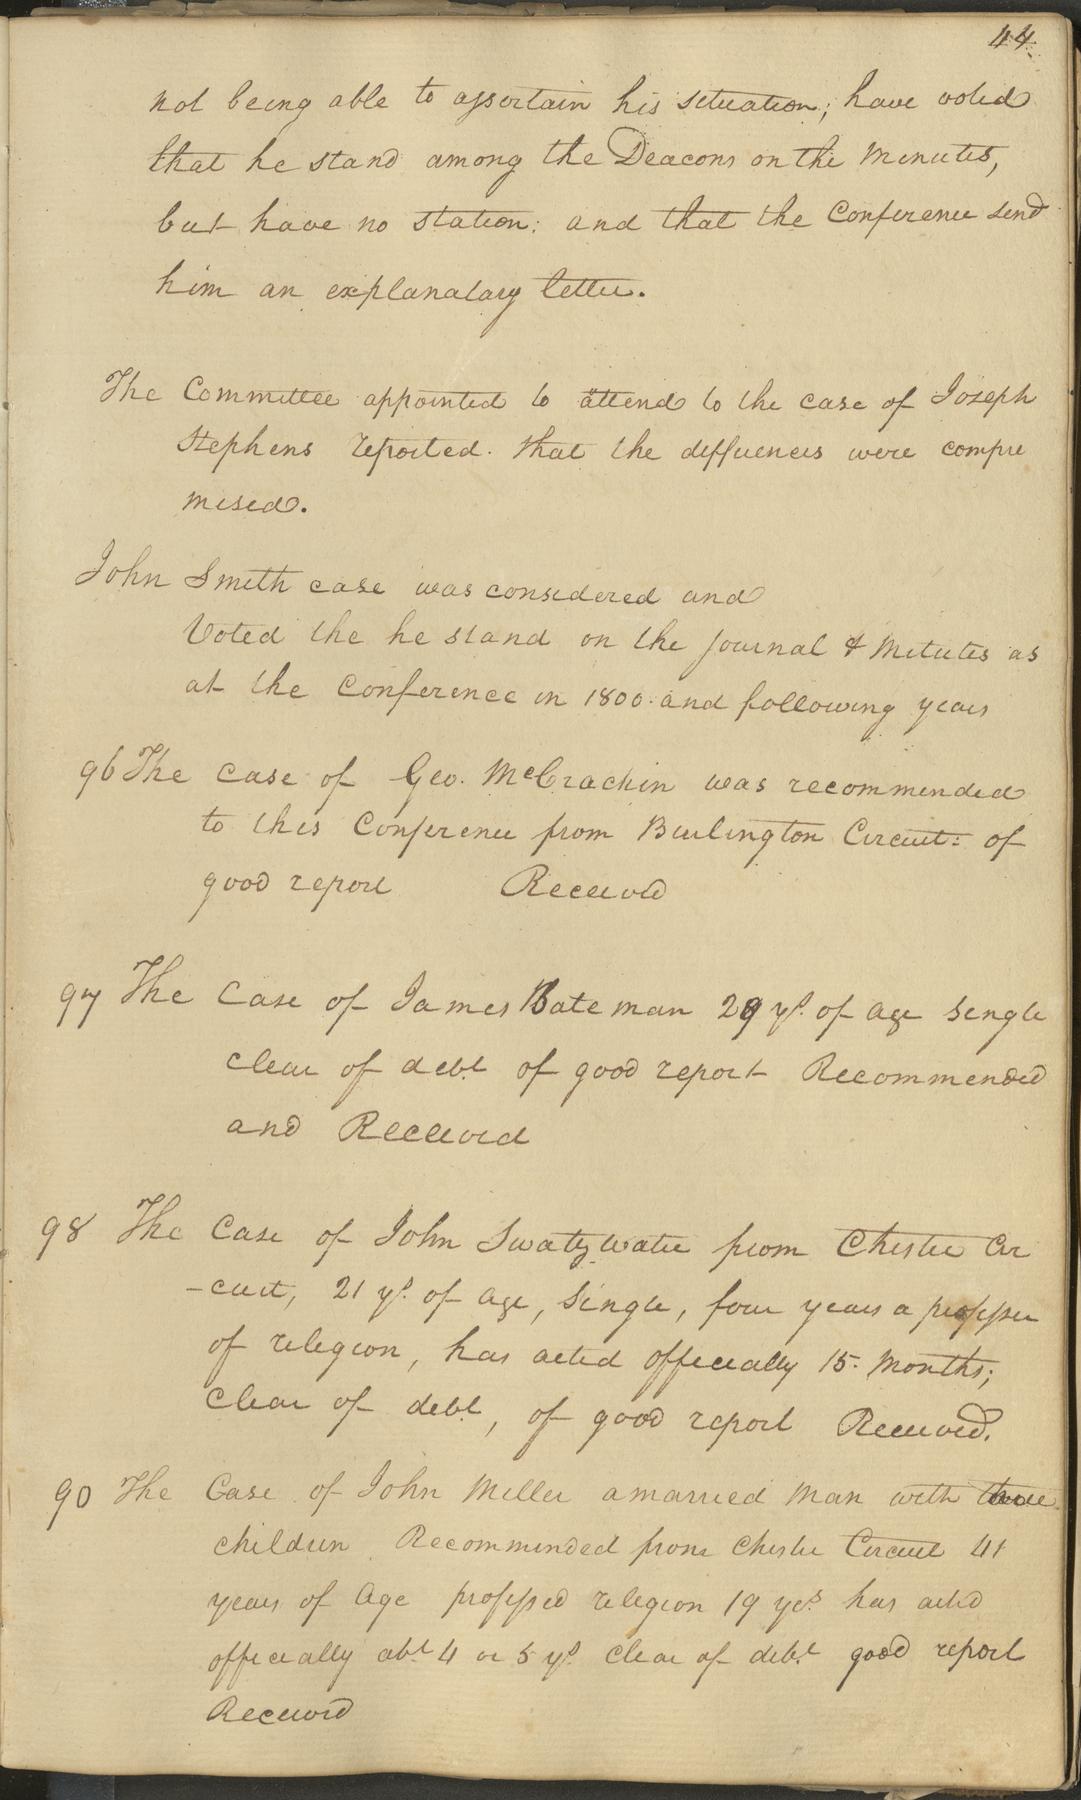 44.
not being able to assertain his situation; have voted
that he stand among the Deacons on the Minutes,
but have no station: and that the Conference send
him an explanatary letter.
The Committee appointed to attend to the case of Joseph
Stephens reported. that the differences were compre
mised.
John Smith case was considered and
Voted the he stand on the Journal & Mitutes as
at the Conference in 1800. and following years
96 The case of Geo. McCrackin was recommended
to this Conference from Burlington Circuit: of
good report Received
97 The Case of James Bateman 29 ys. of age Single
clear of debt of good report Recommended
and Received
98 The Case of John Swatzwater from Chester Cir
-cuit, 21 ys. of age, Single, four years a professer
of religion, has acted officially 15. Months;
Clear of debt, of good report Received.
90 The Case of John Miller a married Man with
children Recommended from Chester Circuit 41
years of Age professed religion 19 yrs. has acted
officially abt 4 or 5 ys. Clear of debt good report
Received